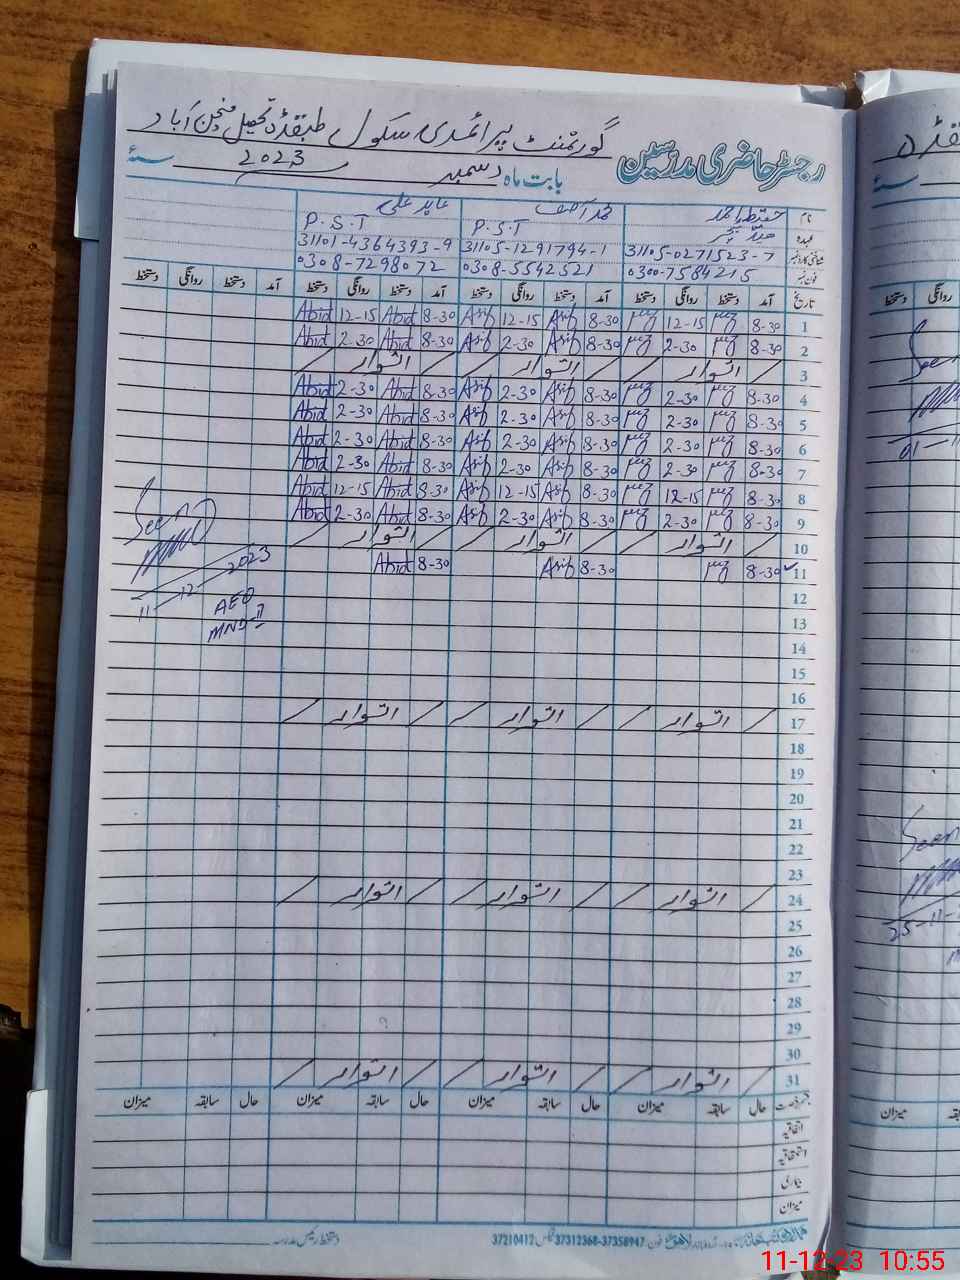 گورنمنٹ پرائمری سکول طبقڈہ تحصیل منچن آباد
رجسٹر حاضری مدرسین بابت ماہ دسمبر 2023 سنہ
نام محمد آصف عابد علی
عہدہ ہیڈ ٹیچر P.S.T P.S.T
31105-0271523-7 31105-1291794-1 31101-4364393-9
فون نمبر 0300-7584215 0308-5542521 0308-7298072
تاریخ آمد دستخط روانگی دستخط آمد دستخط روانگی دستخط آمد دستخط روانگی دستخط آمد دستخط روانگی دستخط
1 8-30 12-15 8-30 Asif 12-15 Asif 8-30 Abid 12-15 Abid
2 8-30 2-30 8-30 Asif 2-30 Asif 8-30 Abid 2-30 Abid
3 / اتوار / / اتوار / / اتوار /
4 8-30 2-30 8-30 Asif 2-30 Asif 8-30 Abid 2-30 Abid
5 8-30 2-30 8-30 Asif 2-30 Asif 8-30 Abid 2-30 Abid
6 8-30 2-30 8-30 Asif 2-30 Asif 8-30 Abid 2-30 Abid
7 8-30 2-30 8-30 Asif 2-30 Asif 8-30 Abid 2-30 Abid
8 8-30 12-15 8-30 Asif 12-15 Asif 8-30 Abid 12-15 Abid
9 8-30 2-30 8-30 Asif 2-30 Asif 8-30 Abid 2-30 Abid
10 / اتوار / / اتوار / / اتوار /
11 8-30 8-30 Asif 8-30 Abid
Seen
11-12-2023
AEO
MND-II
12
13
14
15
16
17 / اتوار / / اتوار / / اتوار /
18
19
20
21
22
23
24 / اتوار / / اتوار / / اتوار /
25
26
27
28
29
30
31 / اتوار / / اتوار / / اتوار /
حال سابقہ میزان حال سابقہ میزان حال سابقہ میزان حال سابقہ میزان
اتفاقیہ
استحقاقیہ
بیماری
میزان
فون: 37358947-37312368 فیکس 37210412
دستخط رئیس مدرسہ
دستخط روانگی
Seen
Seen
25-11-
میزان
11-12-23 10:55